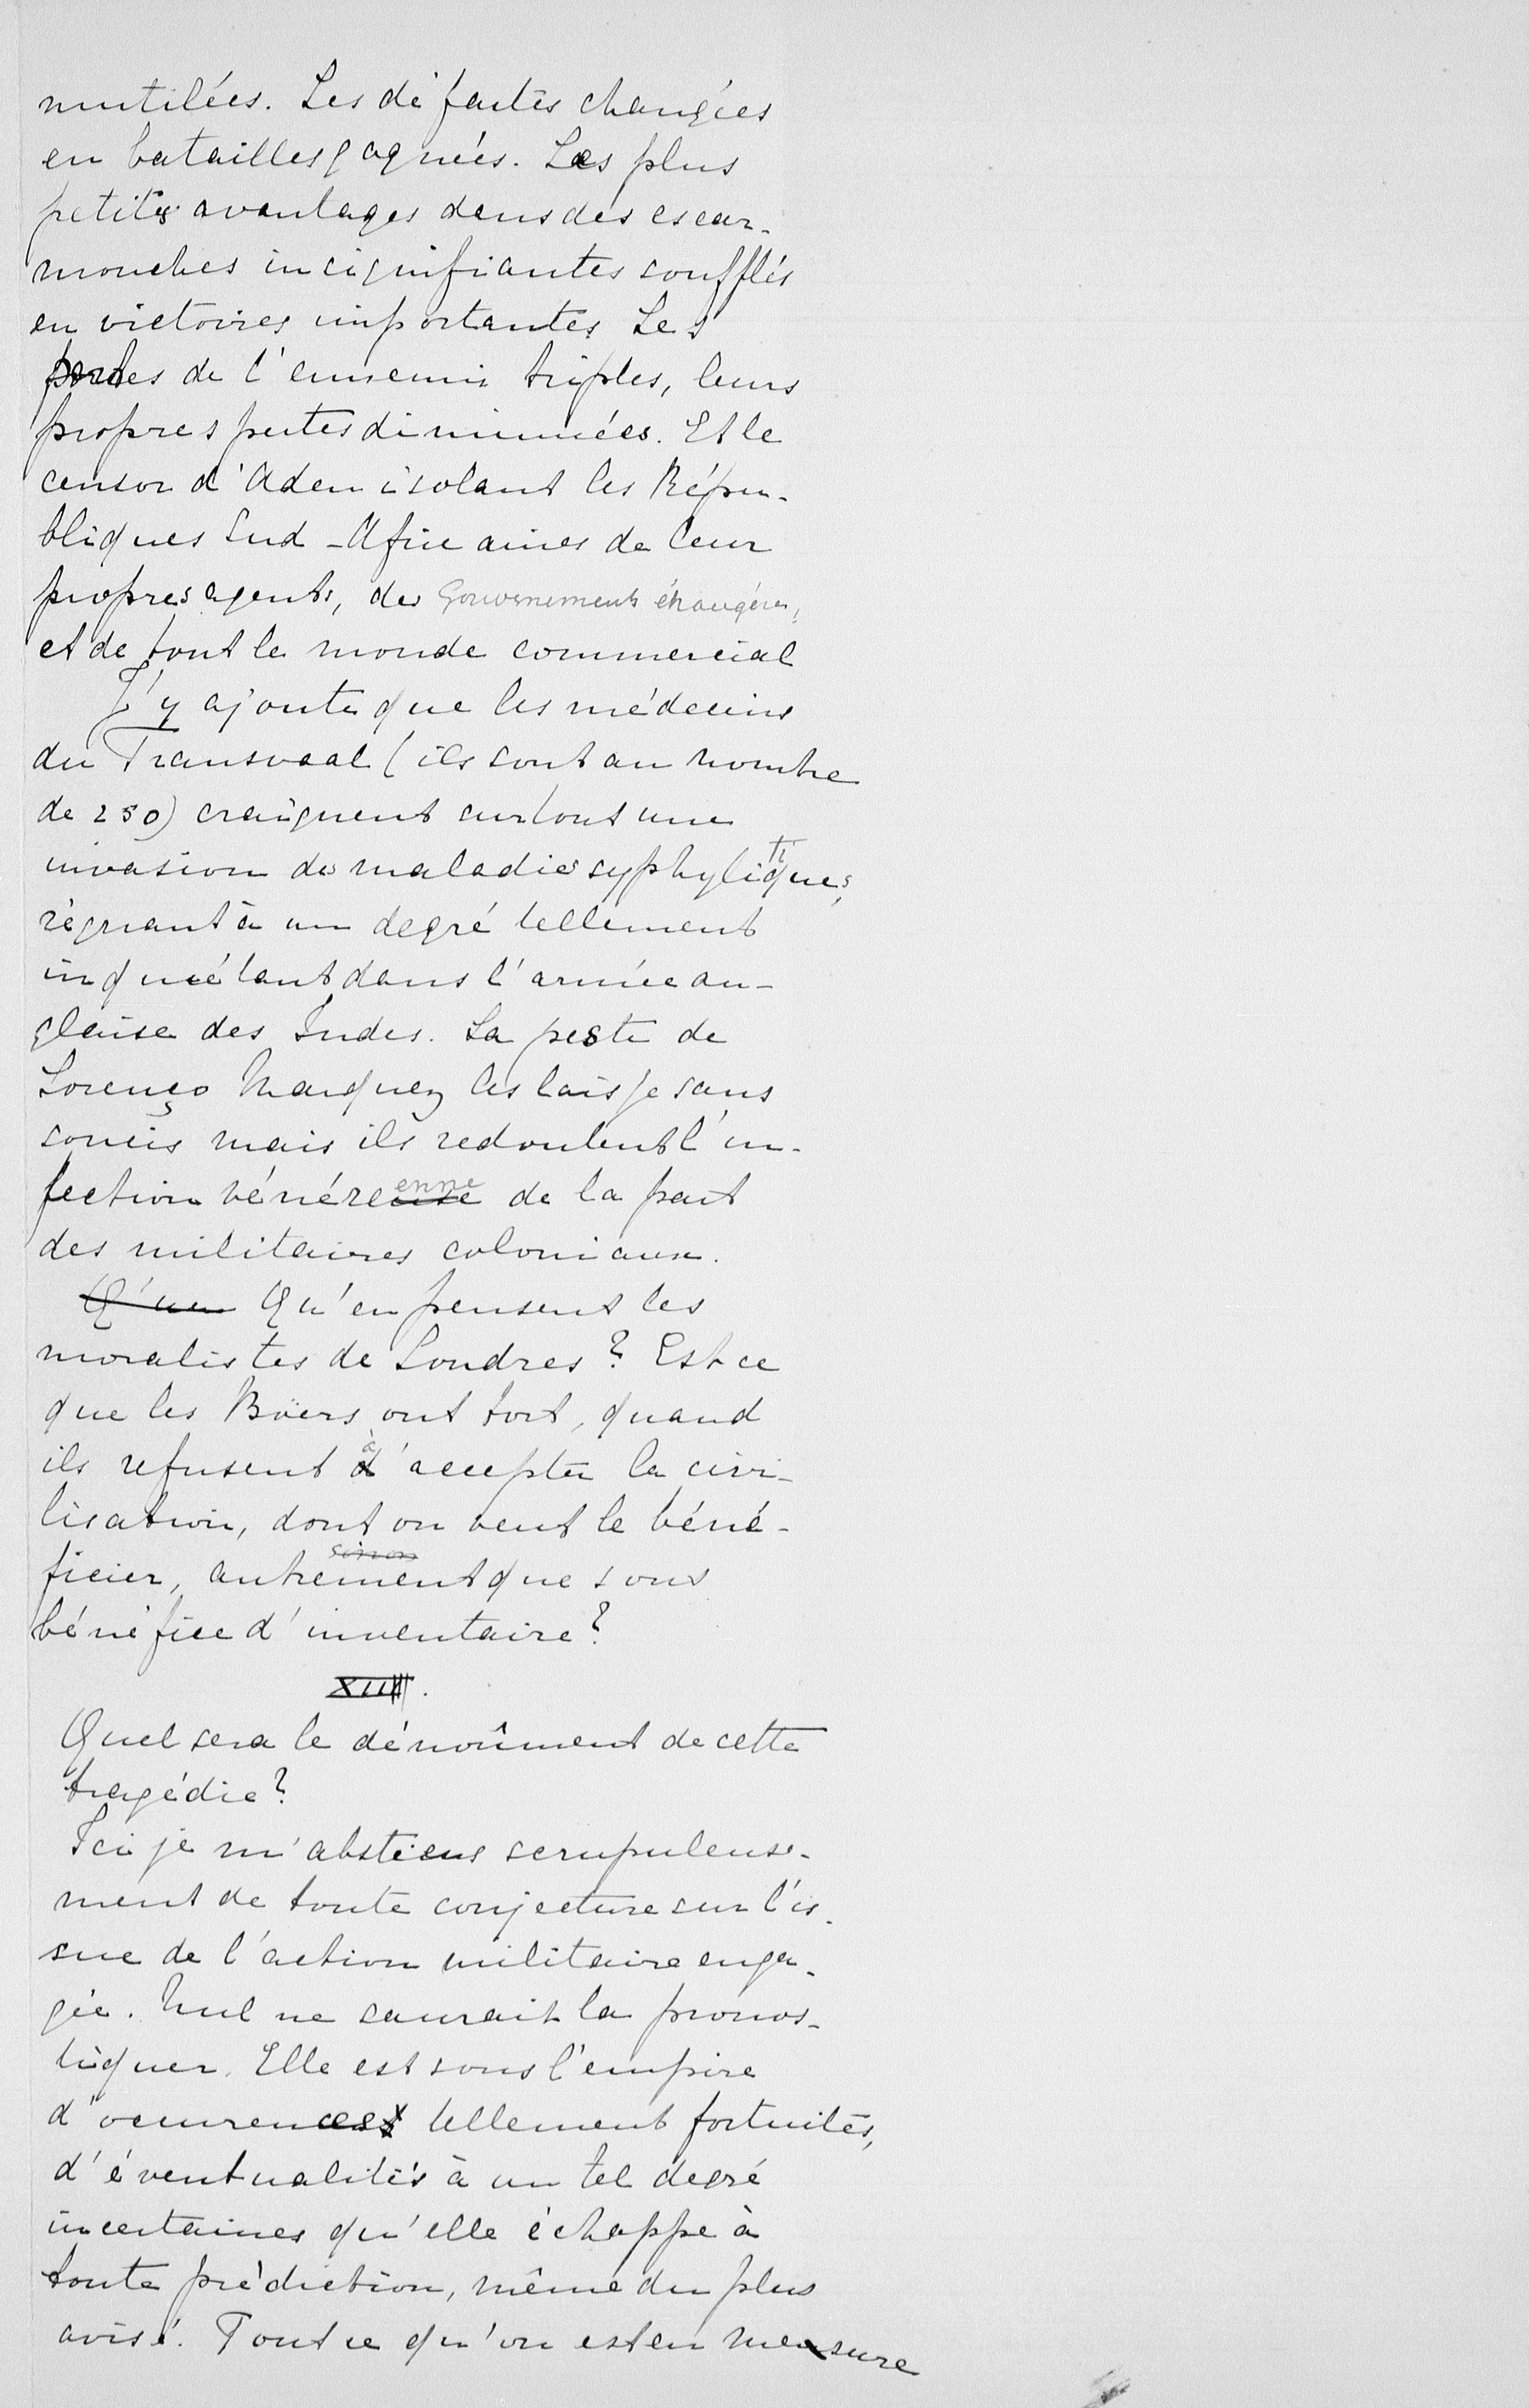 mutilées. Les défaites changées
en batailles gagnées. Les plus
petits avantages dans des escar-
mouches incignifiantes soufflés
en victoires importantes. Les
pertes de l'ennemi triples, leurs
propres pertes diminuées. Et le
censor d'Aden isolant les Répu-
bliques Sud-Africaines de leur
propres agents, des Gouvernements étrangères,
et de tout le monde commercial
J'y ajoute que les médecins
du Transvaal (ils sont au nombre
de 250) craignent surtout une
invasion de maladies syphylitiques,
régnant à un degré tellement
inquiétant dans l'armée an-
glaise des Indes. La peste de
Lorenço Marquez les laisse sans
soucis mais ils redoutent l'in-
fection vénéreuse enne de la part
des militaires coloniaux.
Q'en Qu'en pensent les
moralistes de Londres? Est ce
que les Boërs ont tort, quand
ils refusent à d'accepter la civi-
lisation, dont on veut le béné-
sinon
ficier, autrement que sous
bénéfice d'inventaire?
XIII.
Quel sera le dénoûment de cette
tragédie?
Ici je m'abstiens scrupuleuse-
ment de toute conjecture sur l'is-
sue de l'action militaire enga-
gée. Nul ne saurait la pronos-
tiquer. Elle est sous l'empire
d'occurences tellement fortuites,
d'éventualités à un tel degré
incertaines qu'elle échappe à
toute prédiction, même du plus
avisé. Tout ce qu'on est en mesure